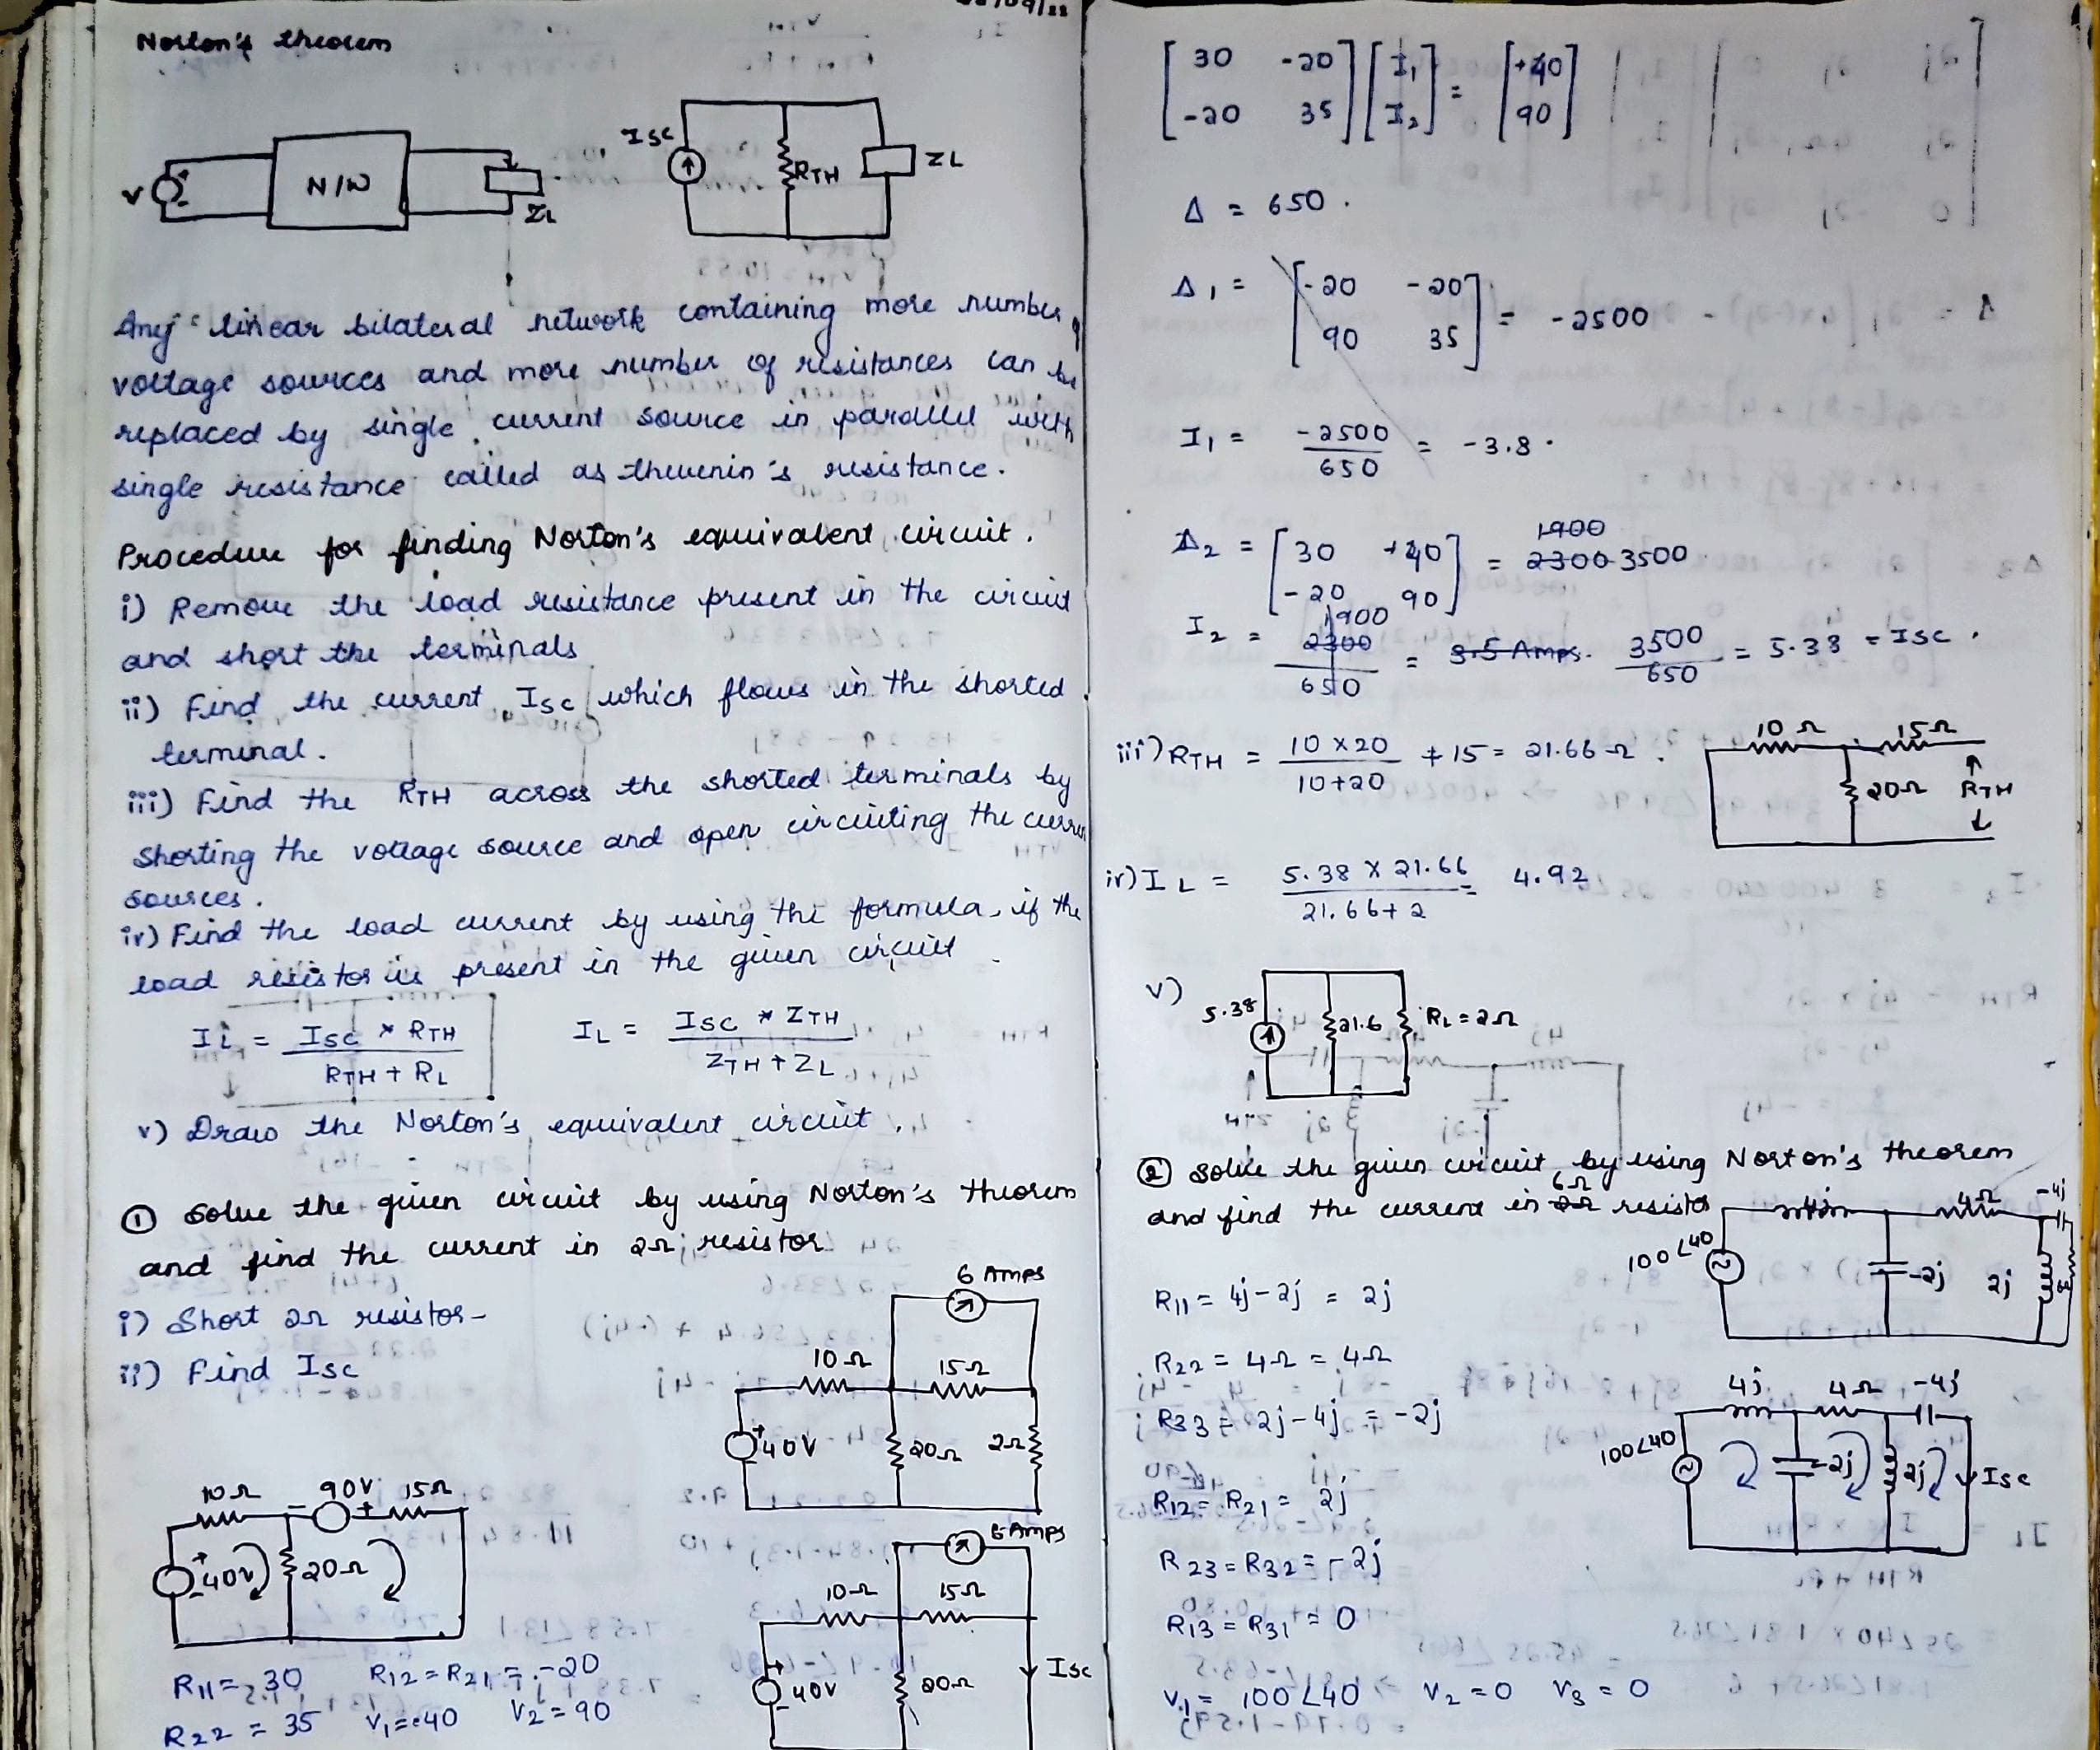 Norton's theorem
V
N/W
ZL
ISC
RTH
ZL
Any linear bilateral network containing more number of
voltage sources and more number of resistances can be
replaced by single current source in parallel with
single resistance called as thevenin's resistance.
Procedure for finding Norton's equivalent circuit.
i) Remove the load resistance present in the circuit
and short the terminals
ii) Find the current Isc which flows in the shorted
terminal.
iii) Find the RTH across the shorted terminals by
shorting the voltage source and open circuiting the curren
sources.
iv) Find the load current by using the formula, if the
load resistor is present in the given circuit
IL = Isc * RTH / RTH + RL
IL = Isc * ZTH / ZTH + ZL
v) Draw the Norton's equivalent circuit.
① Solve the given circuit by using Norton's theorem
and find the current in 2Ω resistor
i) Short 2Ω resistor-
ii) Find Isc
6 Amps
10Ω 15Ω
40V 20Ω 2Ω
10Ω 90V 15Ω
40V 20Ω
6 Amps
10Ω 15Ω
40V 20Ω Isc
R11 = 30 R12 = R21 = -20
R22 = 35 V1 = 40 V2 = 90
[30 -20
-20 35] [I1
I2] = [+40
90]
Δ = 650.
Δ1 = [-20 -20
90 35] = -2500
I1 = -2500 / 650 = -3.8.
1900
Δ2 = [30 +40
-20 90] = 2300 3500
I2 = 1900 2300 / 650 = 3.5 Amps. 3500 / 650 = 5.38 = Isc.
iii) RTH = 10 x 20 / 10+20 + 15 = 21.66 Ω.
10Ω 15Ω
20Ω RTH
iv) IL = 5.38 x 21.66 / 21.66+2 = 4.92
v)
5.38 21.6 RL = 2Ω
② Solve the given circuit by using Norton's theorem
and find the current in 2Ω 6Ω resistor
4j 4Ω -4j
100∠40 -2j 2j
R11 = 4j-2j = 2j
R22 = 4Ω = 4Ω
R33 = 2j-4j = -2j
4j 4Ω -4j
100∠40 -2j 2j Isc
R12 = R21 = 2j
R23 = R32 = -2j
R13 = R31 = 0
V1 = 100∠40 V2 = 0 V3 = 0